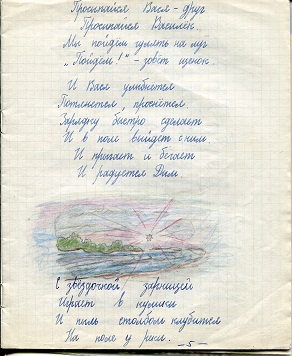 Просыпайся Вася - друг
Просыпайся Василёк.
Мы пойдём гулять на луг
„Пойдём!" - зовёт щенок.
И Вася улыбнётся
Потянется, проснётся.
Зарядку быстро сделает
И в поле выйдет с ним
И прыгает и бегает
И радуется Дим
С звёздочкой, зарницей
Играет в
И пыль столбом клубится
На поле у реки.
-5-